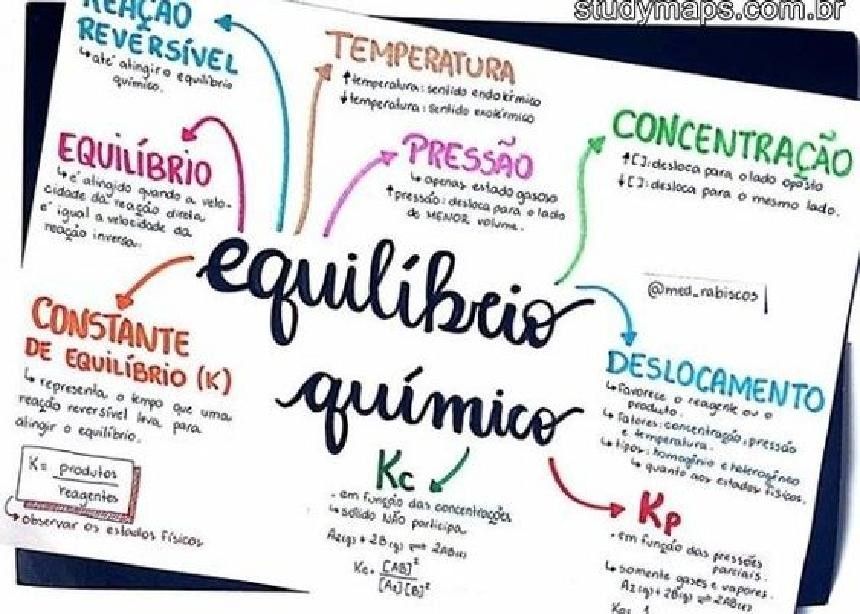 studymaps.com.br
REAÇÃO
REVERSÍVEL
↳ até atingir o equilíbrio
químico.
TEMPERATURA
↑temperatura: sentido endotérmico
↓temperatura: sentido exotérmico
CONCENTRAÇÃO
↑[ ]: desloca para o lado oposto
↓[ ]: desloca para o mesmo lado.
EQUILÍBRIO
↳ é atingido quando a velo-
cidade da reação direta
é igual a velocidade da
reação inversa.
PRESSÃO
↳ apenas estado gasoso
↑pressão: desloca para o lado
de MENOR volume.
equilíbrio
químico
@med_rabiscos
CONSTANTE
DE EQUILÍBRIO (K)
↳ representa o tempo que uma
reação reversível leva para
atingir o equilíbrio.
K= produtos
reagentes
observar os estados físicos
DESLOCAMENTO
↳ favorece o reagente ou o
produto.
↳ fatores: concentração, pressão
e temperatura.
↳ tipos: homogênio e heterogênio
↳ quanto aos estados físicos.
Kc
. em função das concentrações
↳ sólido NÃO participa
A2(g) + 2B(g) ⇌ 2AB(g)
Kc = [AB]²
[A2][B]²
Kp
. em função das pressões
parciais.
↳ somente gases e vapores.
A2(g) + 2B(g) ⇌ 2AB(g)